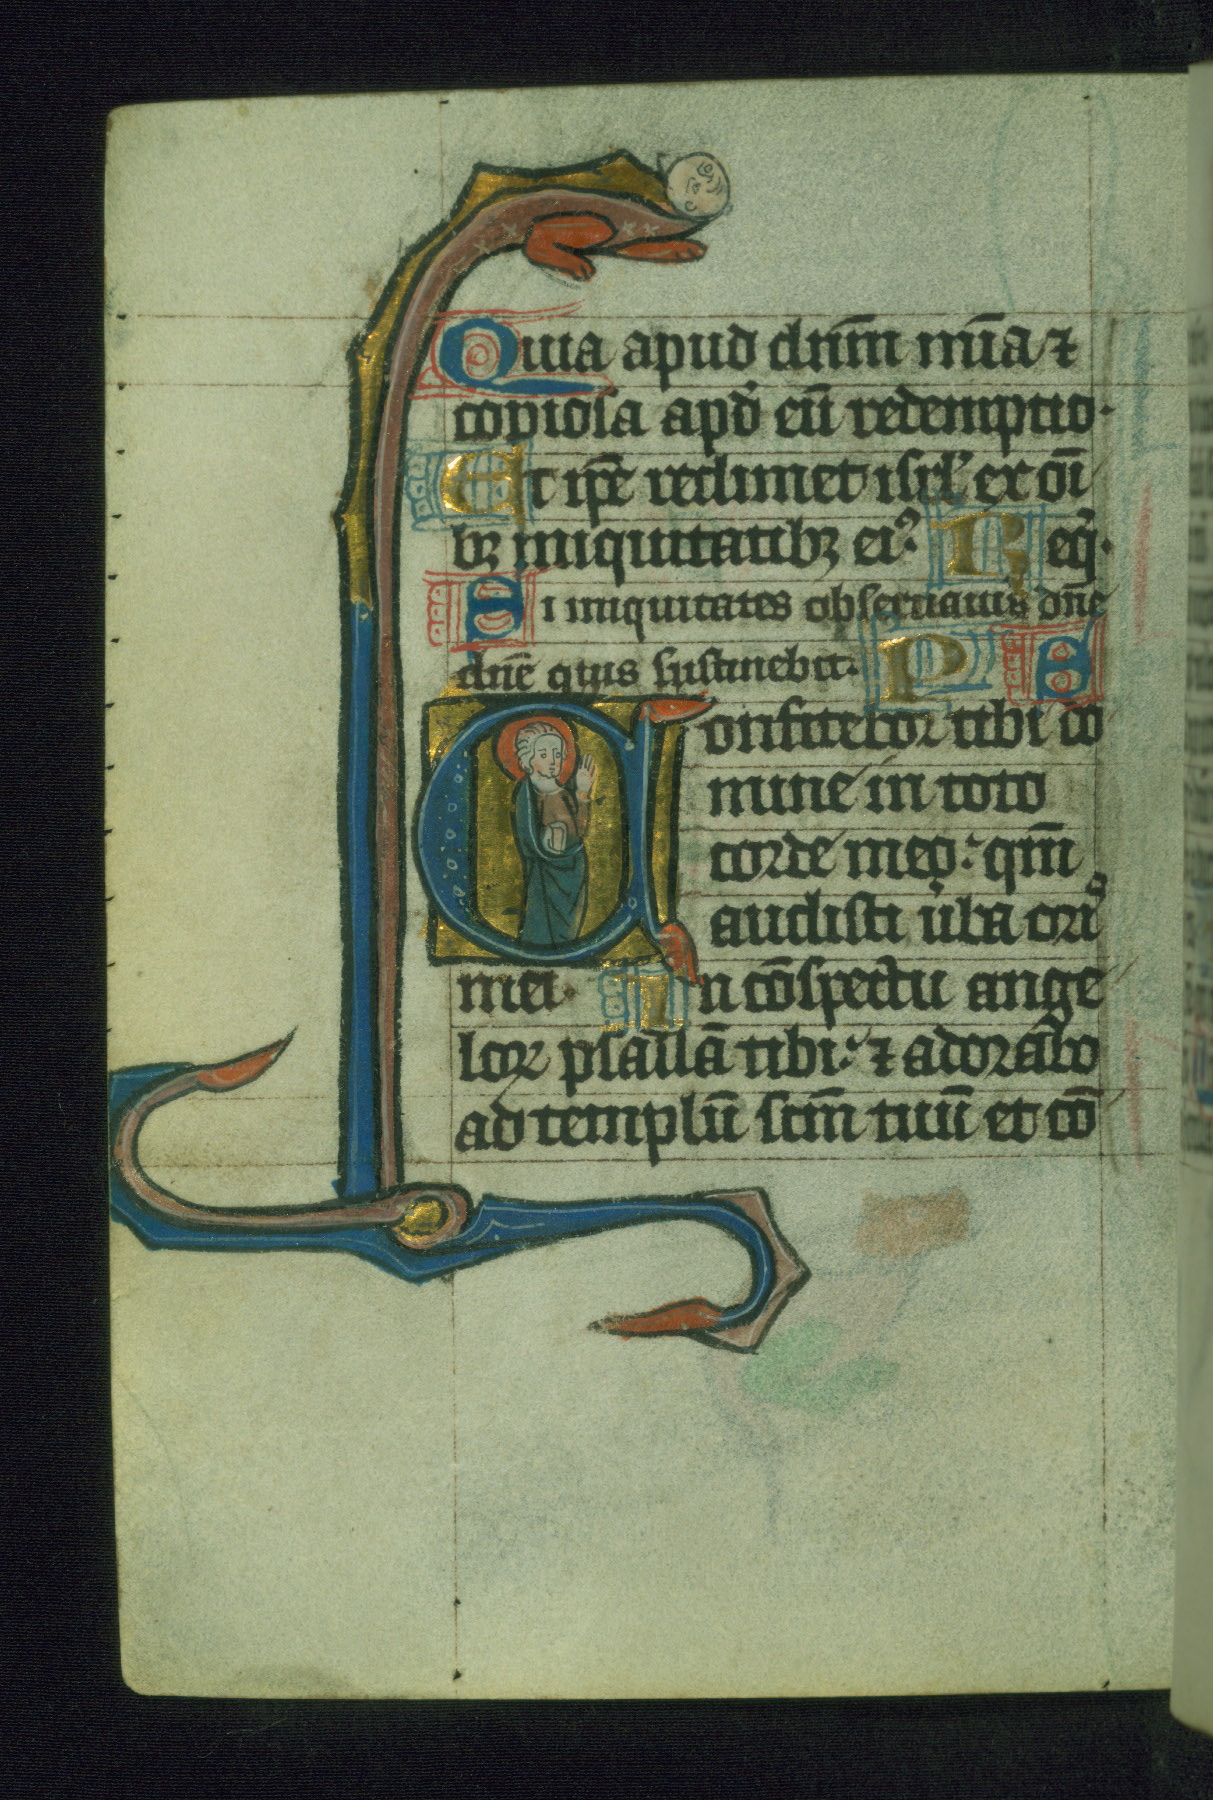 Quia apud dn̄m mīa ⁊
copiosa apḋ eū redemptio·
Et ip̄e redimet isrl̓ ex oī
bꝫ iniquitatibꝫ eiꝰ. Req̓·
Si iniquitates obseruauis dn̄e
dn̄e quis sustinebit. P S
Confitebor tibi do
mine in toto
corde meo: qm̄
audisti ūba oris
mei. In cōspectu ange
loꝝ psallā tibi: ⁊ adorabo
ad templū scm̄ tuū et cō